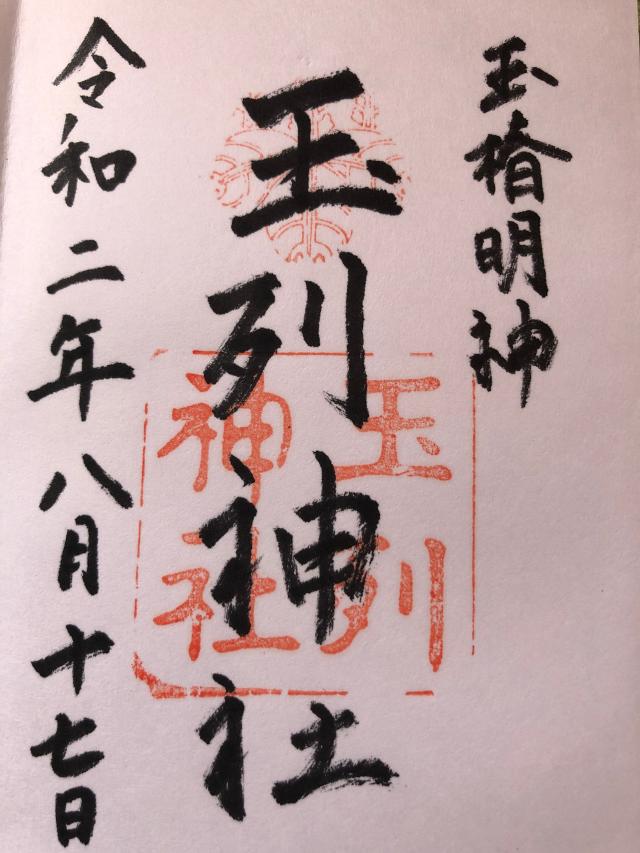 玉椿明神
玉列神社
玉列
神社
令和二年八月十七日